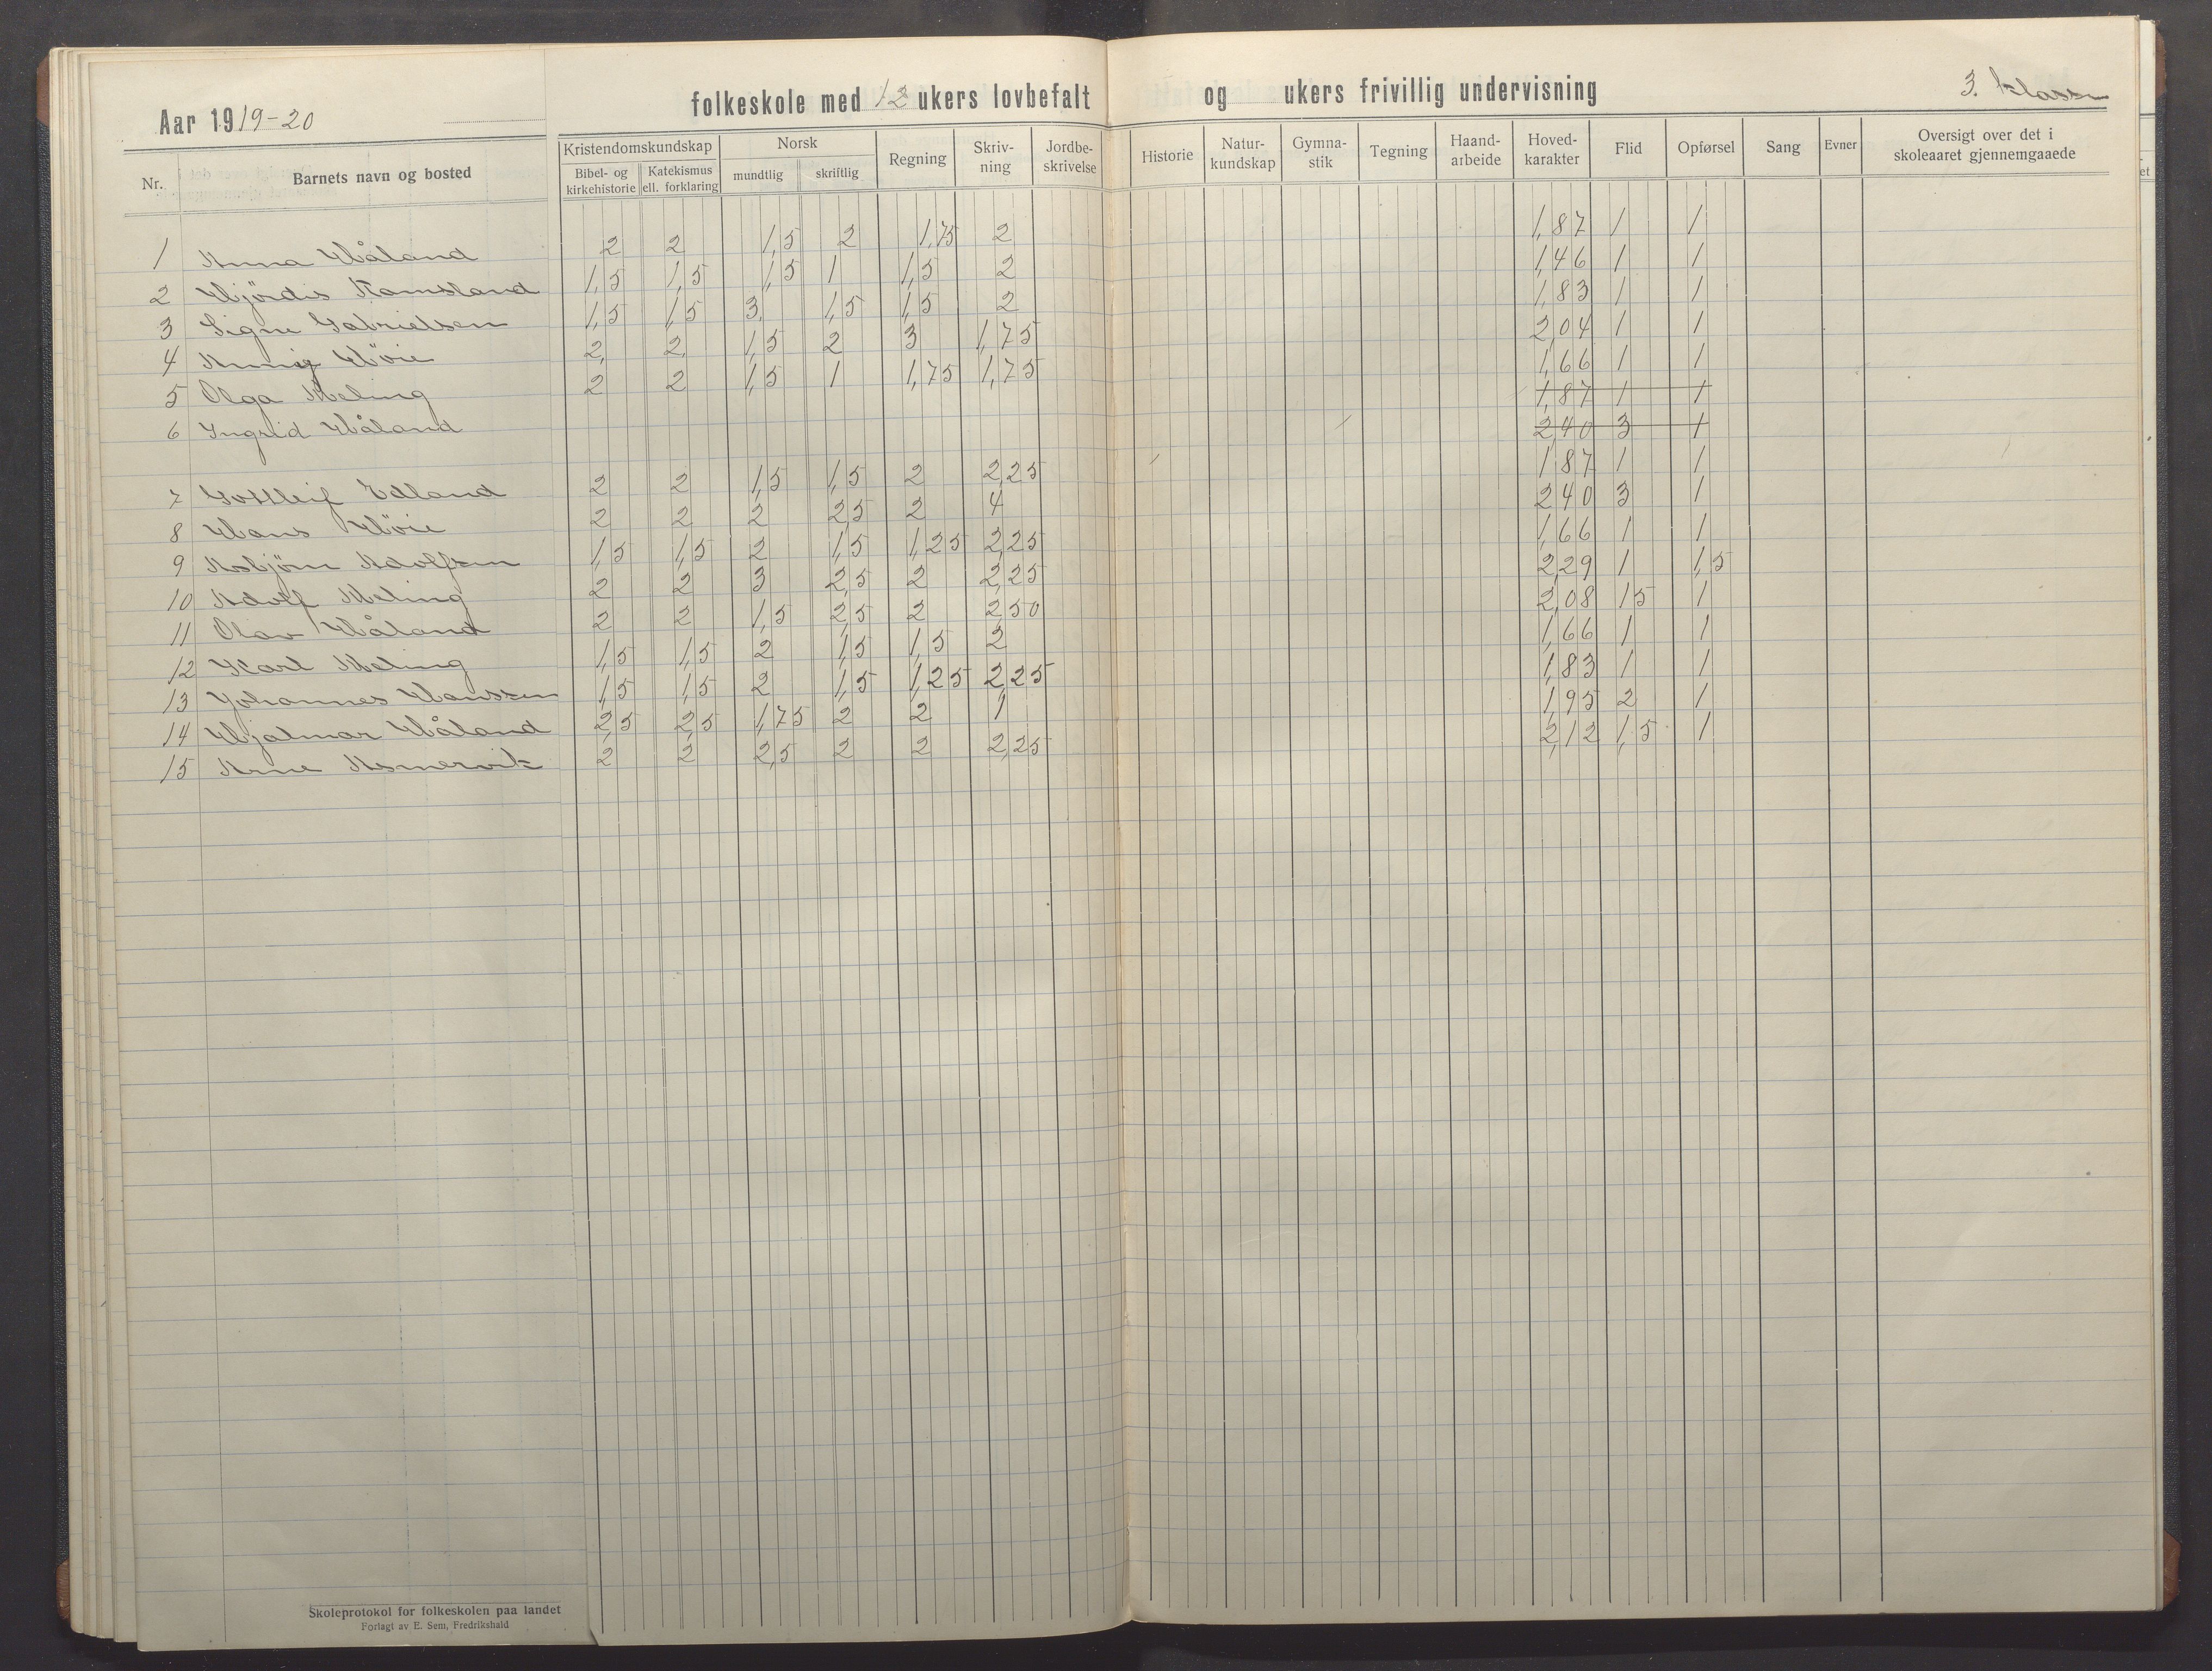 Aar 1919-20
folkeskole med 12 ukers lovbefalt og ukers frivillig undervisning
3. klasse
Nr. Barnets navn og bosted Kristendomskundskap Bibel- og kirkehistorie Katekismus ell. forklaring Norsk mundtlig skriftlig Regning Skriv-ning Jordbe-skrivelse Historie Natur-kundskap Gymna-stik Tegning Haand-arbeide Hoved-karakter Flid Opførsel Sang Evner Oversigt over det i skoleaaret gjennemgaaede
1 Anna Håland 2 2 1,5 2 1,75 2 1,87 1 1
2 Hjördis Ramsland 1,5 1,5 1,5 1 1,5 2 1,46 1 1
3 Signe Gabrielsen 1,5 1,5 3 1,5 1,5 2 1,83 1 1
4 Annig Höie 2 2 1,5 2 3 1,75 2,04 1 1
5 Olga Meling 2 2 1,5 1 1,75 1,75 1,66 1 1
6 Ingrid Håland 1,87 1 1
2,40 3 1
7 Gottleif Edland 2 2 1,5 1,5 2 2,25 1,87 1 1
8 Hans Höie 2 2 2 2,5 2 4 2,40 3 1
9 Asbjörn Adolfsen 1,5 1,5 2 1,5 1,25 2,25 1,66 1 1
10 Adolf Meling 2 2 3 2,5 2 2,25 2,29 1 1,5
11 Olav Håland 2 2 1,5 2,5 2 2,50 2,08 1,5 1
12 Karl Meling 1,5 1,5 2 1,5 1,5 2 1,66 1 1
13 Johannes Hanssen 1,5 1,5 2 1,5 1,25 2,25 1,83 1 1
14 Hjalmar Håland 2,5 2,5 1,75 2 2 1 1,95 2 1
15 Arne Asmervik 2 2 2,5 2 2 2,25 2,12 1,5 1
Skoleprotokol for folkeskolen paa landet
Forlagt av E. Sem, Fredrikshald